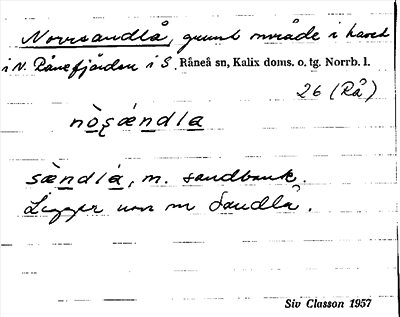 Norrsandlå, grunt område i havet
i N. Rånefjärden i S. Råneå sn, Kalix doms. o. tg. Norrb. l.
26 (Rå)
nòṣǽndla
sændlá, m. sandbank.
Ligger norr om Sandlå.
Siv Classon 1957